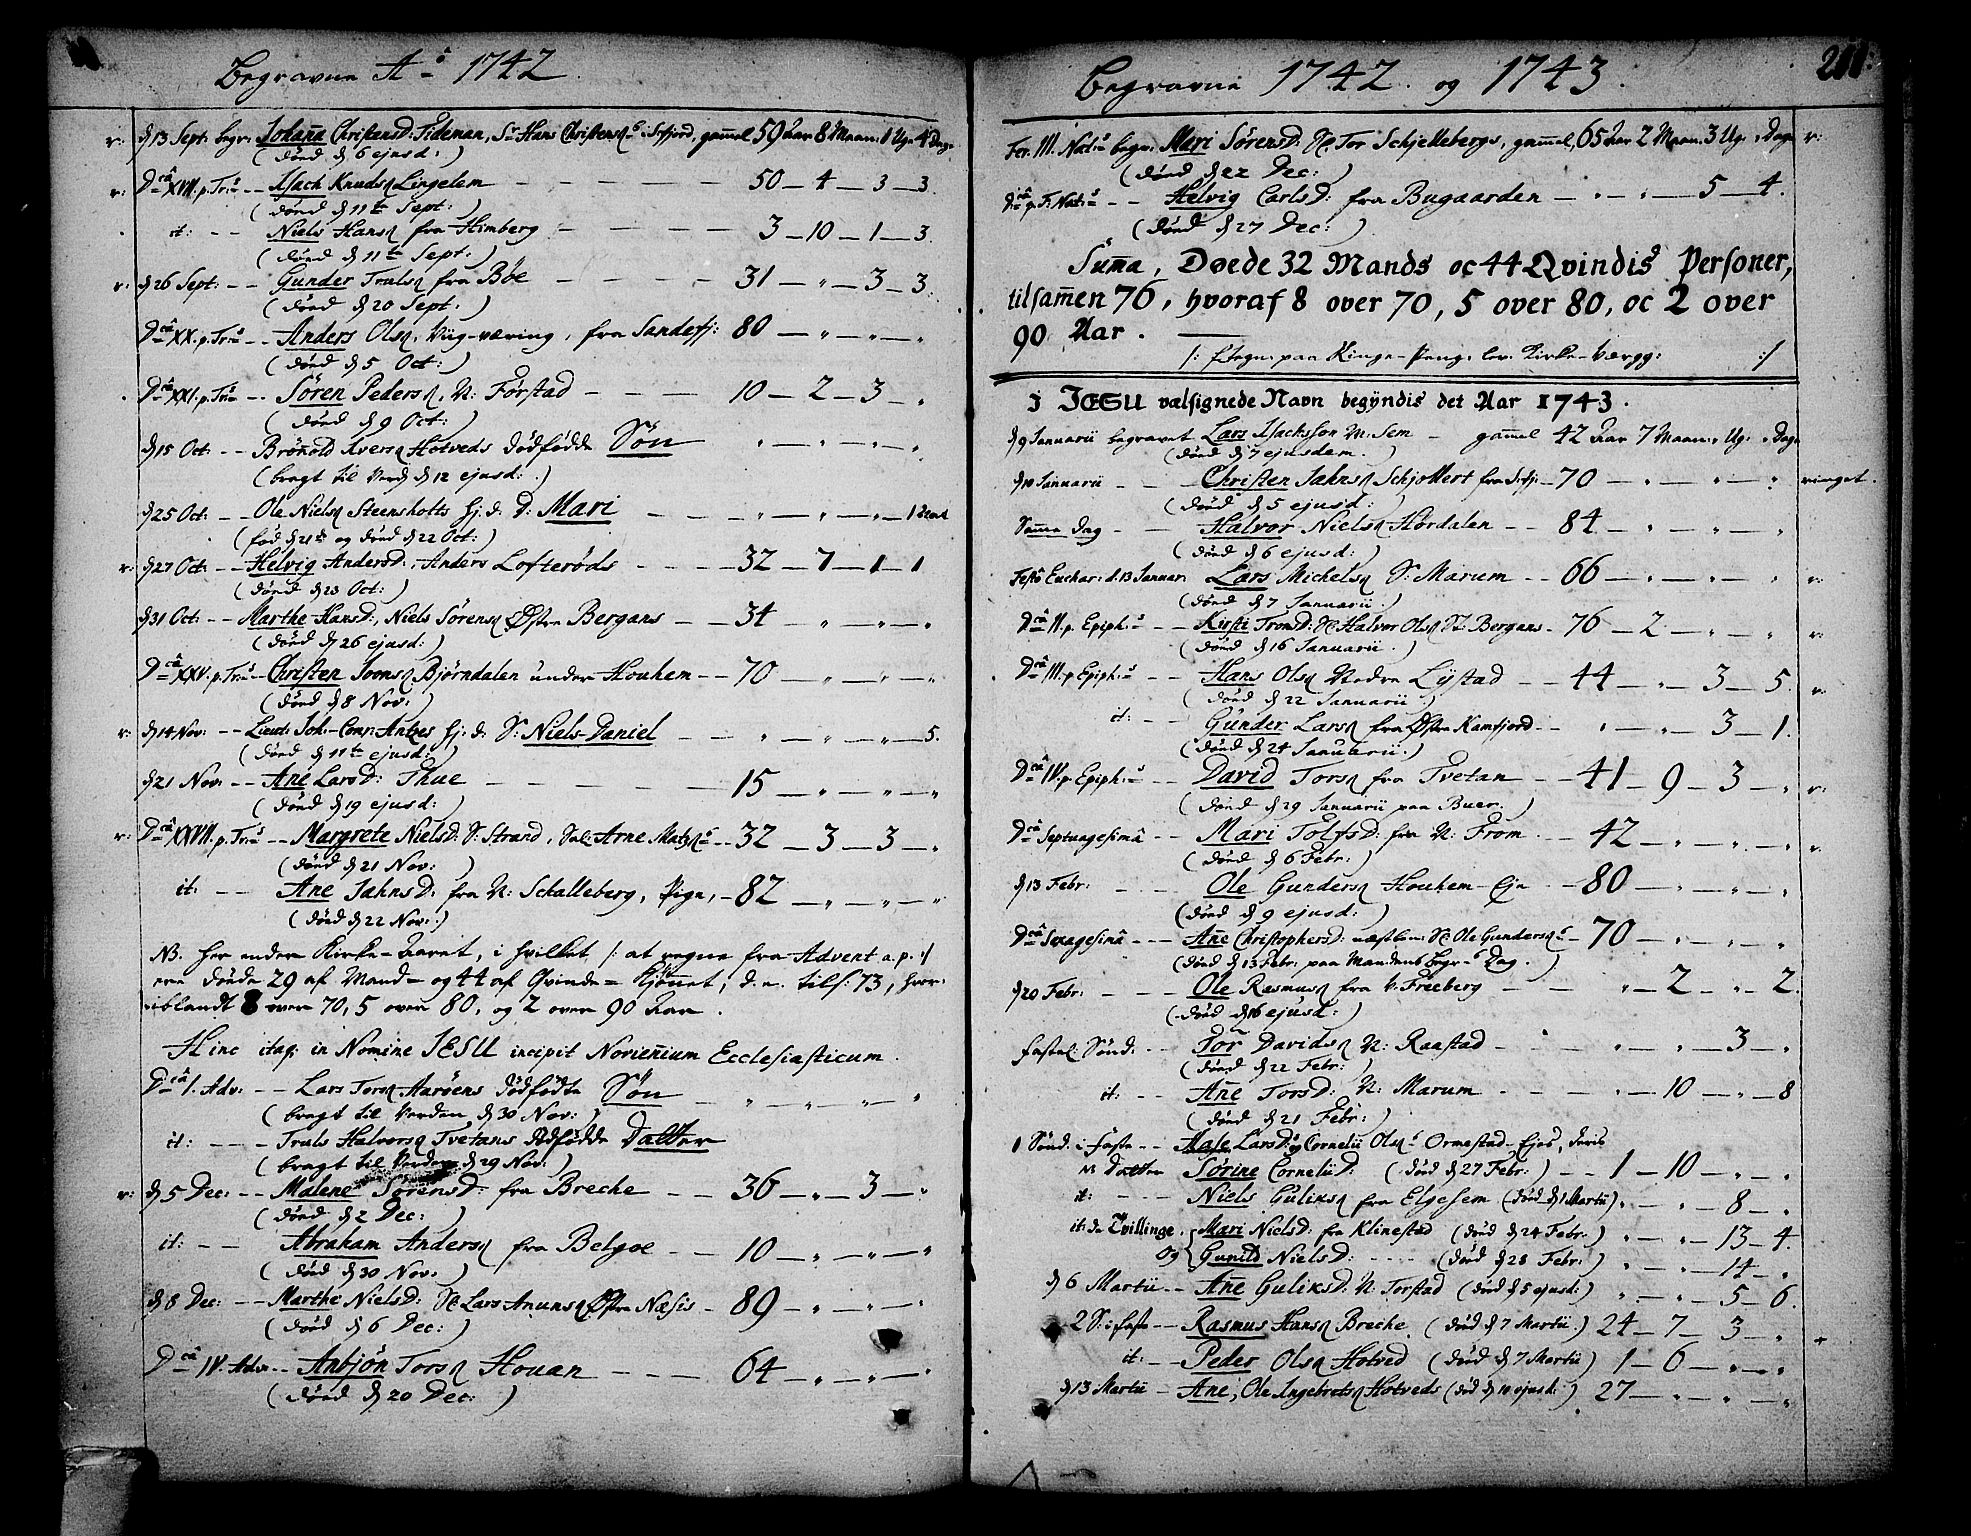 Begravne Aō 1742.
r: d 13 Sept: begr: Johaña Christensd: Tideman, Sr Hans Christens: i Sefjord, gam̄el 59 Aar 8 Maan: 1 Ug: 4 Dage
(Döed d 6 ejusd:)
r: Dca XVII. p. Tr: -- Isach Knuds: Lingelem — 50 — 4 — 3 — 3.
(Döed d 11te Sept:)
it: -- Niels Hans: fra Himberg — 3 — 10 — 1 — 3.
(Döed d 11te Sept:)
r: d 26 Sept: -- Gunder Truls: fra Böe — 31 — " — 3 — 3.
(Döed d 20 Sept:)
Dca XX. p. Tr: -- Anders Ols:, Viig-væring, fra Sandefj: 80 — " — " — "
(Döed d 5 Oct:)
Dca XXI. p. Tr: -- Sören Peders:, N: Förstad — 10 — 2 — 3 — "
(Döed d 9 Oct:)
d 15 Oct: -- Brönold Ivers: Hotveds Dödfödde Sön " — " — " — "
(bragt til Verd: d 12 ejusd:)
d 25 Oct: -- Ole Niels: Steensholts hj: d: D: Mari — " — " — " — 1
(föd d 21de og döed d 22 Oct:)
r: d 27 Oct: -- Helvig Andersd:, Anders Lofteröds — 32 — 7 — 1 — 1
(Döed d 23 Oct:)
d 31 Oct: -- Marthe Hansd:, Niels Sörens: Østre Bergans — 34 — " — " — "
(Döed d 26 ejusd:)
Dca XXV. p. Tr: -- Christen Joens: Bjørndalen under Houhem -- 70 — " — " — "
(Döed d 8 Nov:)
r: d 14 Nov: -- Lieut: Joh: Conr: Antzes hj: d: S: Niels-Daniel — " — " — " — 5.
(Döed d 11te ejusd:)
d 21 Nov: -- Ane Larsd: Thue — 15 — " — " — "
(Döed d 19 ejusd:)
r: Dca XXVII. p. Tr: -- Margrete Nielsd: S: Strand, Sal: Arne Mats: -- 32 — 3 — 3 — "
(Döed d 21 Nov:)
it: -- Ane Jahnsd: fra N: Schalleberg, Pige, — 82 — " — " — "
(Döed d 22 Nov:)
NB. her ender Kirke-Aaret, i hvilket /: at regne fra Advent a. p. :/
ere döede 29 af Mand- og 44 af Qvinde-Kjönnet, d. e. tils: 73, hvor-
iblandt 8 over 70, 5 over 80, og 2 over 90 Aar.
Hinc itaq: in Nomine JESU incipit Noviennium Ecclesiasticum.
Dca 1. Adv: -- Lars Tors: Aaröens Dödfödte Sön — " — " — " — "
(bragt til Verden d 30 Nov:)
it: --- Truls Halvors: Tvetans Dödfödde Datter
(bragt til Verden d 29 Nov:)
r: d 5 Dec: -- Malene Sörensd: fra Breche — 36 — " — 3 — "
(Döed d 2 Dec:)
it: -- Abraham Anders: fra Belgoe — 10 — " — " — "
(Döed d 30 Nov:)
d 8 Dec: -- Marthe Nielsd: Se Lars Anuns: Østre Næsis — 89 — " — " — "
(Döed d 6 Dec:)
Dca IV. Adv: -- Anbjön Tors: Houan — 64 — " — " — "
(Döed d 20 Dec:)
Begravne 1742. og 1743.
211:
Fer. III. Nat: begr: Mari Sörensd: Se Tor Schjellebergs, gam̄el, 65 Aar 2 Maan: 3 Ug: " Dage r:
(Döed d 22 Dec:)
Dca p. F. Nat: -- Helvig Carlsd: fra Bugaarden — " — " — 5 — 4.
(Döed d 27 Dec:)
Sum̄a, Døede 32 Mands oc 44 Qvindis Personer,
tilsam̄en 76, hvoraf 8 over 70, 5 over 80, oc 2 over
90 Aar.
/: ftegn: paa Ringe-Peng: lev: Kirke-Værgg: :/
J JESU velsignede Navn begÿndis det Aar 1743.
d 9 Januarii begravet Lars Isachsson N: Sem — gam̄el 42 Aar 7 Maan: " Ug: " Dage
(Döed d 7 ejusdem.)
d 10 Januarii --- Christen Jahns: Schjollert fra Sefj: — 70 — " — " — " ringet.
(Döed d 5 ejusd:)
Sam̄e Dag -- Halvor Niels: Hördalen -- 84 — " — " — "
(Döed d 6 ejusd:)
Festo Euchar: d. 13 Januar: Lars Michels: S: Marum -- 66 — " — " — " r:
(Döed d 7 Januarii.)
Dca II. p. Epiph: -- Kirsti Tromsd: Se Halvor Ols: St: Bergans — 76 — 2 — " — " r:
(Döed d 16 Januarii.)
Dca III. p. Epiph: -- Hans Ols: Nedre Lÿstad -- 44 — " — 3 — 5. r:
(Döed d 22 Januarii)
it: --- Gunder Lars: fra Østre Kamfjord -- " — " — 3 — 1.
(Döed d 24 Januarii.)
Dca IV. p. Epiph: -- David Tors: fra Tvetan -- 41 — 9 — 3 — " r:
(Döed d 29 Januarii paa Buer.)
Dca Septuagesimâ -- Mari Tolfsd: fra N: From -- 42 — " — " — " r.
(Döed d 6 Febr:)
d 13 Febr: --- Ole Gunders: Houhem-Eje -- 80 — " — " — "
(Döed d 9 ejusd:)
Dca Sexagesimâ --- Añe Christophersd: næstbem: Se Ole Gunders: — 70 — " — " — "
(Döed d 13 Febr: paa Mandens Begr: Dag.)
d 20 Febr: --- Ole Rasmus: fra V: Freeberg -- " — 2 — " — 2.
(Döed d 16 ejusd:)
Fastel: Sönd: -- Tor Davids: N: Raastad — " — " — 3 — "
(Döed d 22 Febr:)
it: -- Añe Torsd: N: Marum — " — 10 — " — 8
(Döed d 21 Febr:)
1 Sönd: i Faste -- Aase Larsd: og Cornelii Ols: Ormestad-Ejes, deris
Datter Sörine Corneliid: (Döed d 27 Febr:) -- 1 — 10 — " — "
it: --- Niels Guliks: fra Elgesem (Döed d 1 Martii) " — " — 8 — "
it: de Tvillinge, Mari Nielsd: fra Klinestad (Döed d 24 Febr:) " — " — 13 — 4.
og Gunild Nielsd: --- (Döed d 28 Febr:) " — " — 14 — "
d 6 Martii -- Añe Guliksd: N: Torstad (Döed d 5 ejusd:) " — " — 5 — 6.
2 S: i Faste -- Rasmus Hans: Breche (Döed d 7 Martii.) 24 — 7 — 3 — " r
it: -- Peder Ols: Hotved (Döed d 7 Martii) 1 — 6 — " — "
d 13 Martii — Ane, Ole Ingebrets: Hotveds (Död d 10 ejusd:) 27 — " — " — "